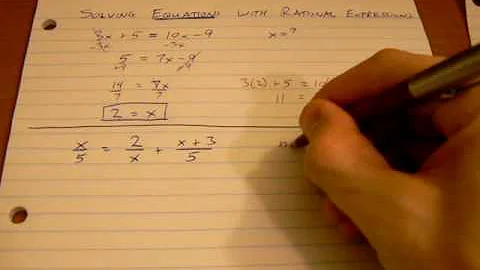 SOLVING EQUATIONS WITH RATIONAL EXPRESSIONS
3x + 5 = 10x - 9 x = ?
-3x -3x
5 = 7x - 9
+9 +9
14/7 = 7x/7 3(2) + 5 = 10
2 = x 11 =
x/5 = 2/x + x + 3/5